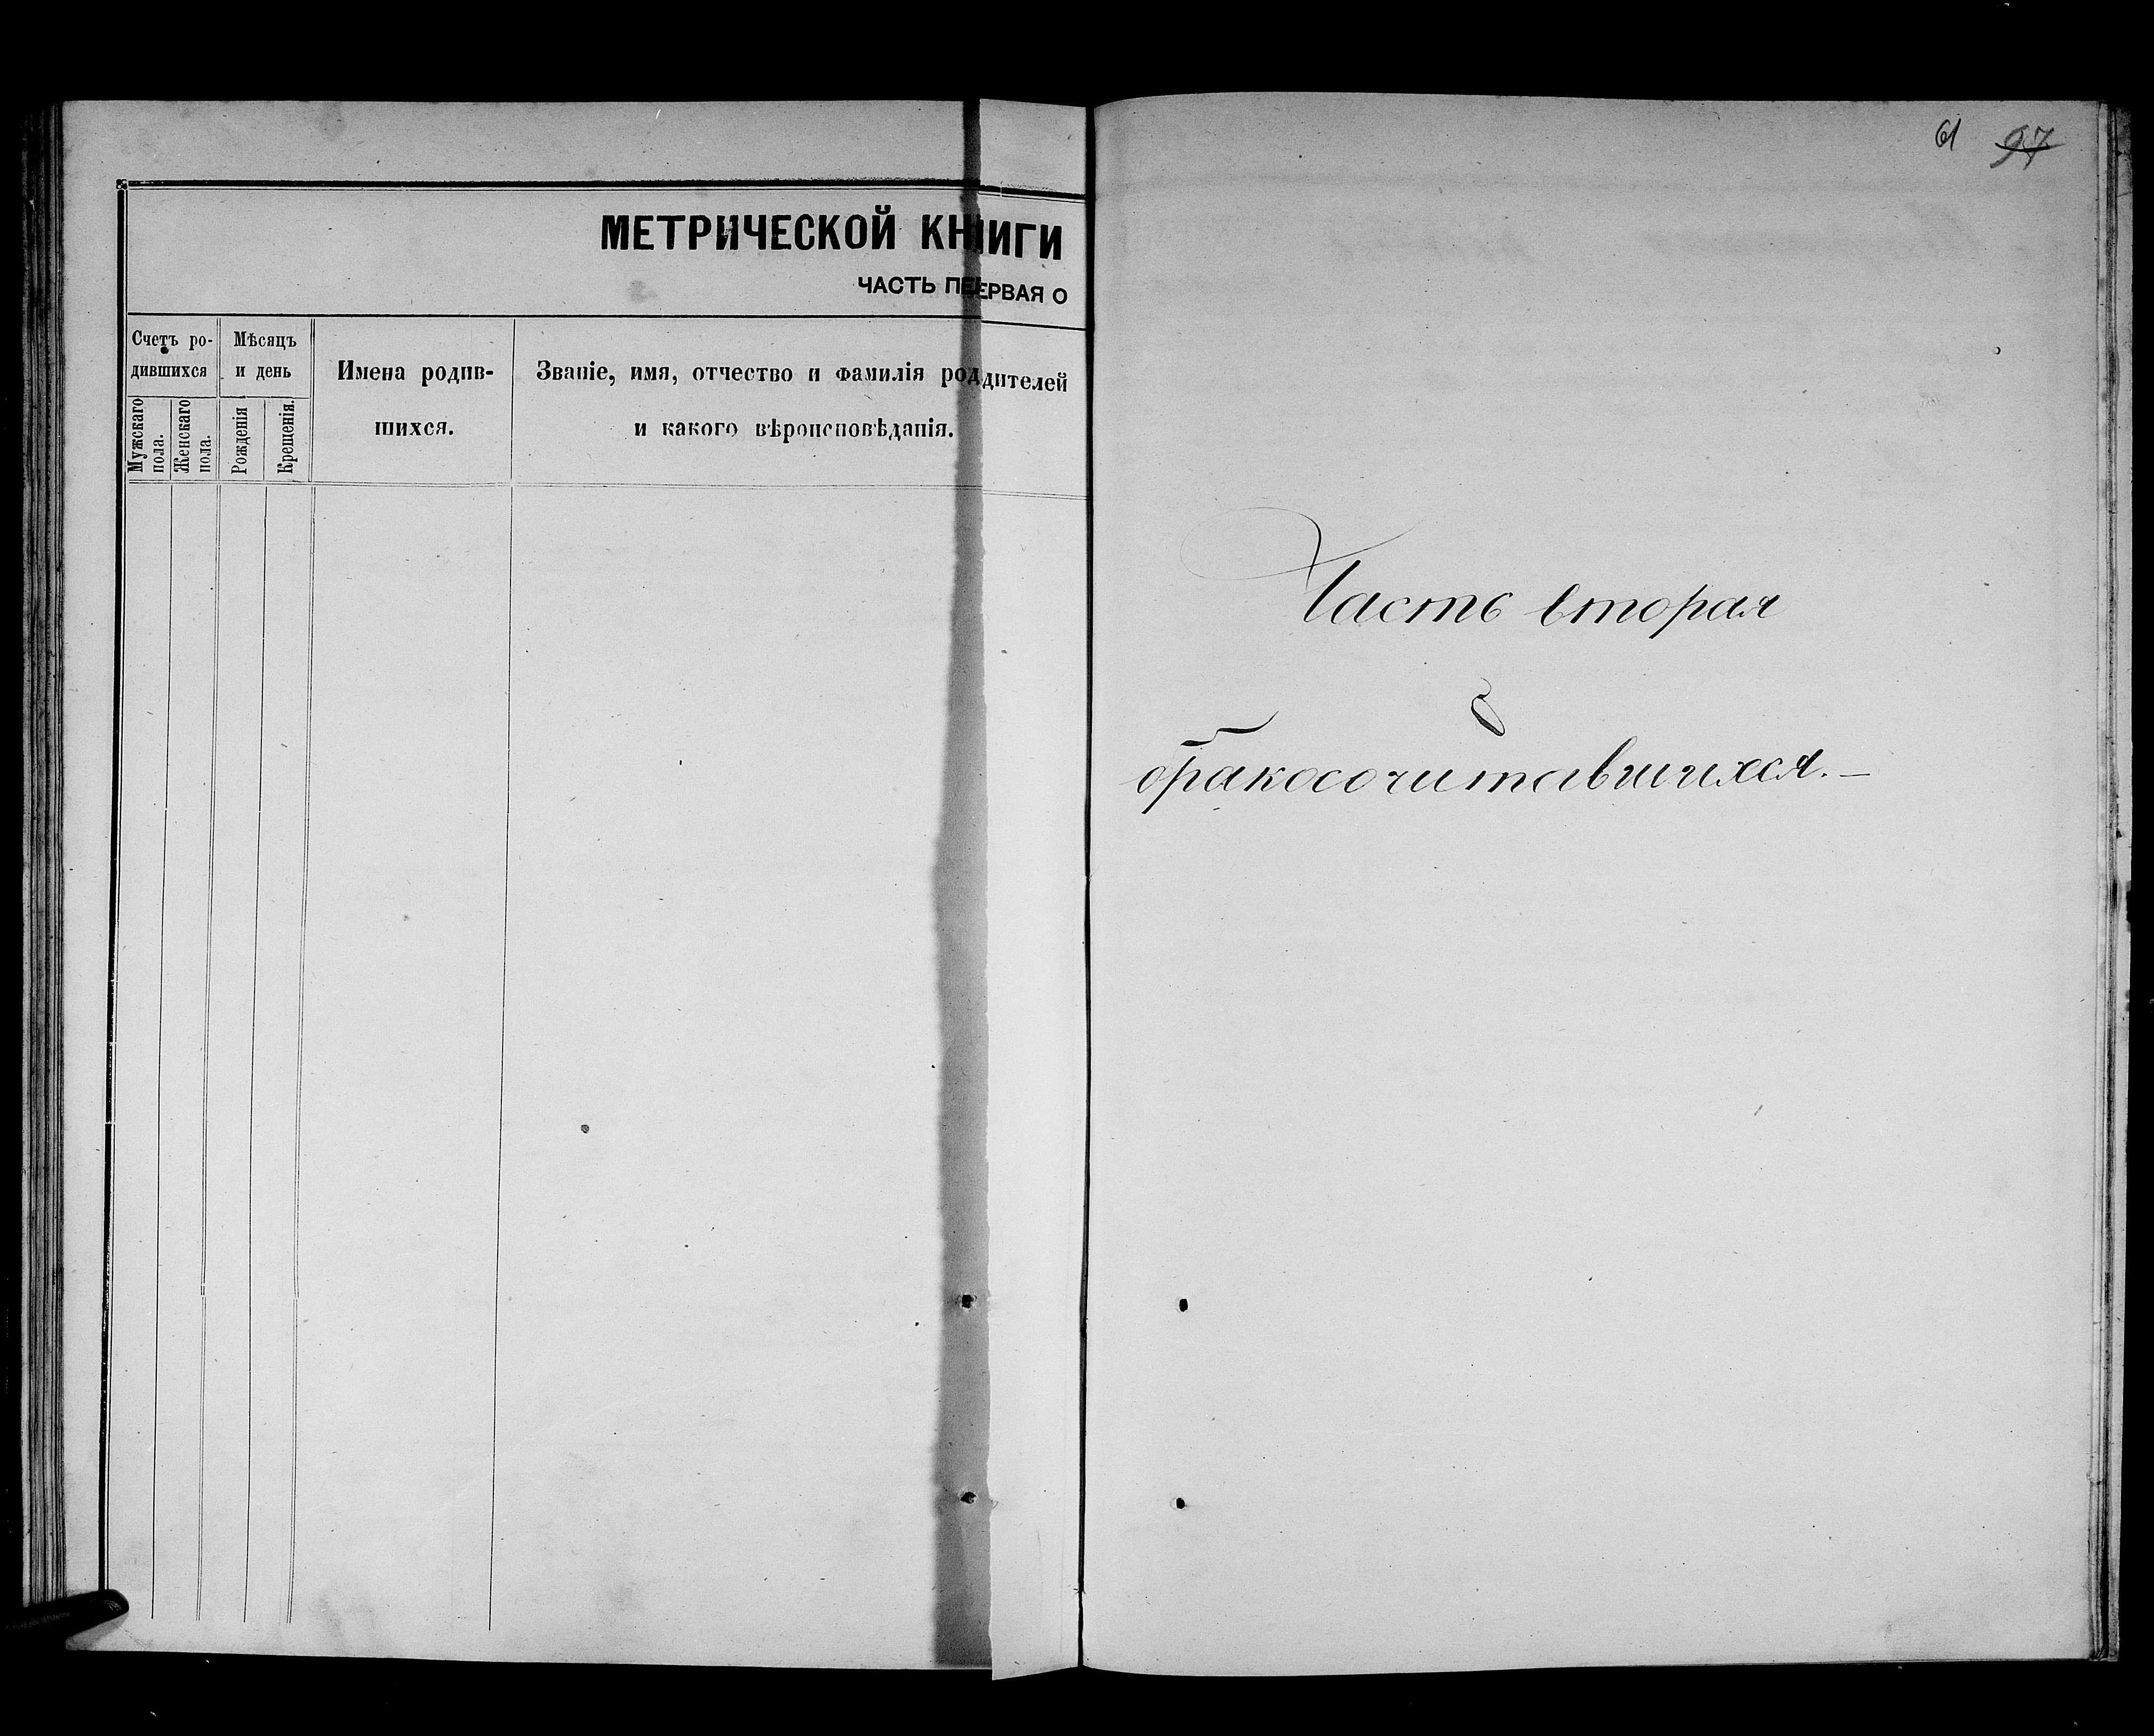 МЕТРИЧЕСКОЙ КНИГИ
ЧАСТЬ ПЕРВАЯ О
Счетъ ро-
дившихся
Мѣсяцъ
и день
Имена родив-
шихся.
Званіе, имя, отчество и фамилія родителей
и какого вѣроисповѣданія.
Мужскаго
пола.
Женскаго
пола.
Рожденія
Крещенія.
61 97
Часть вторая
о
бракосочитавшихся.—